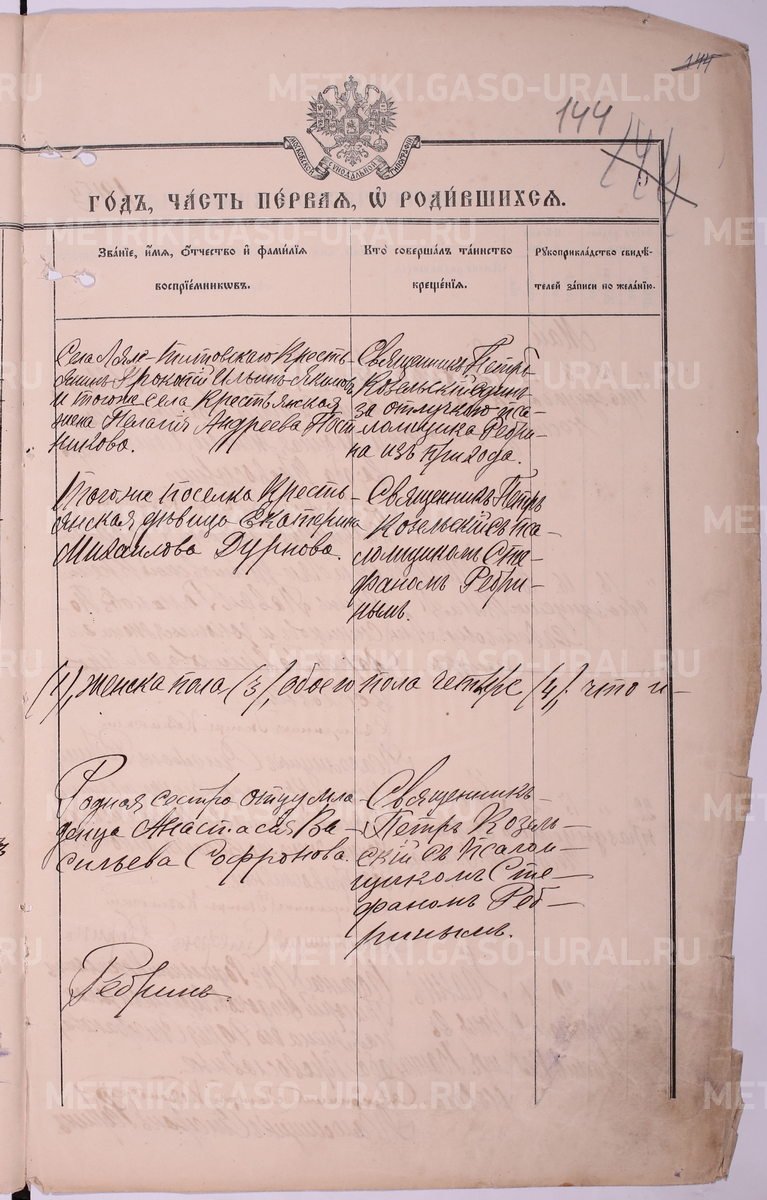 144
144
144
МОСКОВСКОЙ СѴНОДАЛЬНОЙ ТИПОГРАФІИ
ГОДЪ, ЧА́СТЬ ПЕ́РВАЯ, Ѡ҆ РОДИ́ВШИХСЯ.
Зва́нїе, и҆́мя, ѻ҆́тчество и҆ фами́лїя
воспрїе́мникѡвъ.
Кто̀ соверша́лъ та́инство
креще́нїя.
Рꙋкоприкла́дство свидѣ́-
телей за́писи по жела́нїю.
Села Ляля-Титовскаго Кресть-
янинъ Прокопій Ильинъ
и тогоже села Крестьянская
жена Пелагія Андреева Пост
никова.
Священникъ Петръ
Козельскій единъ
за отлучкою пса-
ломщика Ребри-
на изъ прихода.
Тогоже поселка Кресть-
янская дѣвица Екатерина
Михаилова Дурнова.
Священникъ Петръ
Козельскій съ пса-
ломщикомъ Сте-
фаномъ Ребри-
нымъ.
(1), женска пола (3), обоего пола четыре (4), что и-
Родная сестра отцу мла-
денца Анастасія Ва-
сильева Софронова.
Священникъ
Петръ Козель-
скій съ псалом-
щикомъ Сте-
фаномъ Реб-
ринымъ.
Ребринъ.
METRIKI.GASO-URAL.RU